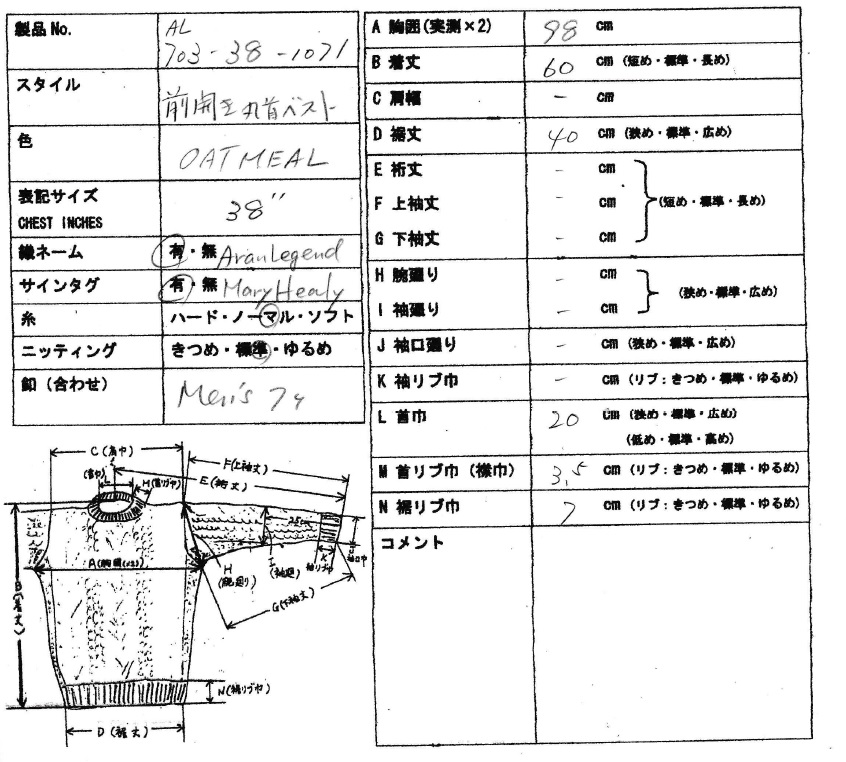 製品No.
AL
703-38-1071
スタイル
前開き丸首ベスト
色
OATMEAL
表記サイズ
CHEST INCHES
38"
織ネーム
有・無 Aran Legend
サインタグ
有・無 Mary Healy
糸
ハード・ノーマル・ソフト
ニッティング
きつめ・標準・ゆるめ
釦（合わせ）
Men's 7ケ
A 胸囲(実測×2) 98 cm
B 着丈 60 cm (短め・標準・長め)
C 肩幅 - cm
D 裾丈 40 cm (狭め・標準・広め)
E 裄丈 - cm
F 上袖丈 - cm (短め・標準・長め)
G 下袖丈 - cm
H 腕廻り - cm
(狭め・標準・広め)
I 袖廻り - cm
J 袖口廻り - cm (狭め・標準・広め)
K 袖リブ巾 - cm (リブ：きつめ・標準・ゆるめ)
L 首巾 20 cm (狭め・標準・広め)
(低め・標準・高め)
M 首リブ巾（襟巾） 3.5 cm (リブ：きつめ・標準・ゆるめ)
N 裾リブ巾 7 cm (リブ：きつめ・標準・ゆるめ)
コメント
C (肩巾)
F(上袖丈)
E(裄丈)
L
(首巾)
M(首リブ巾)
A(胸囲(×2))
B(着丈)
H
(腕廻り)
I
(袖廻)
K
袖リブ巾
J
袖口巾
G(下袖丈)
N(裾リブ巾)
D (裾丈)